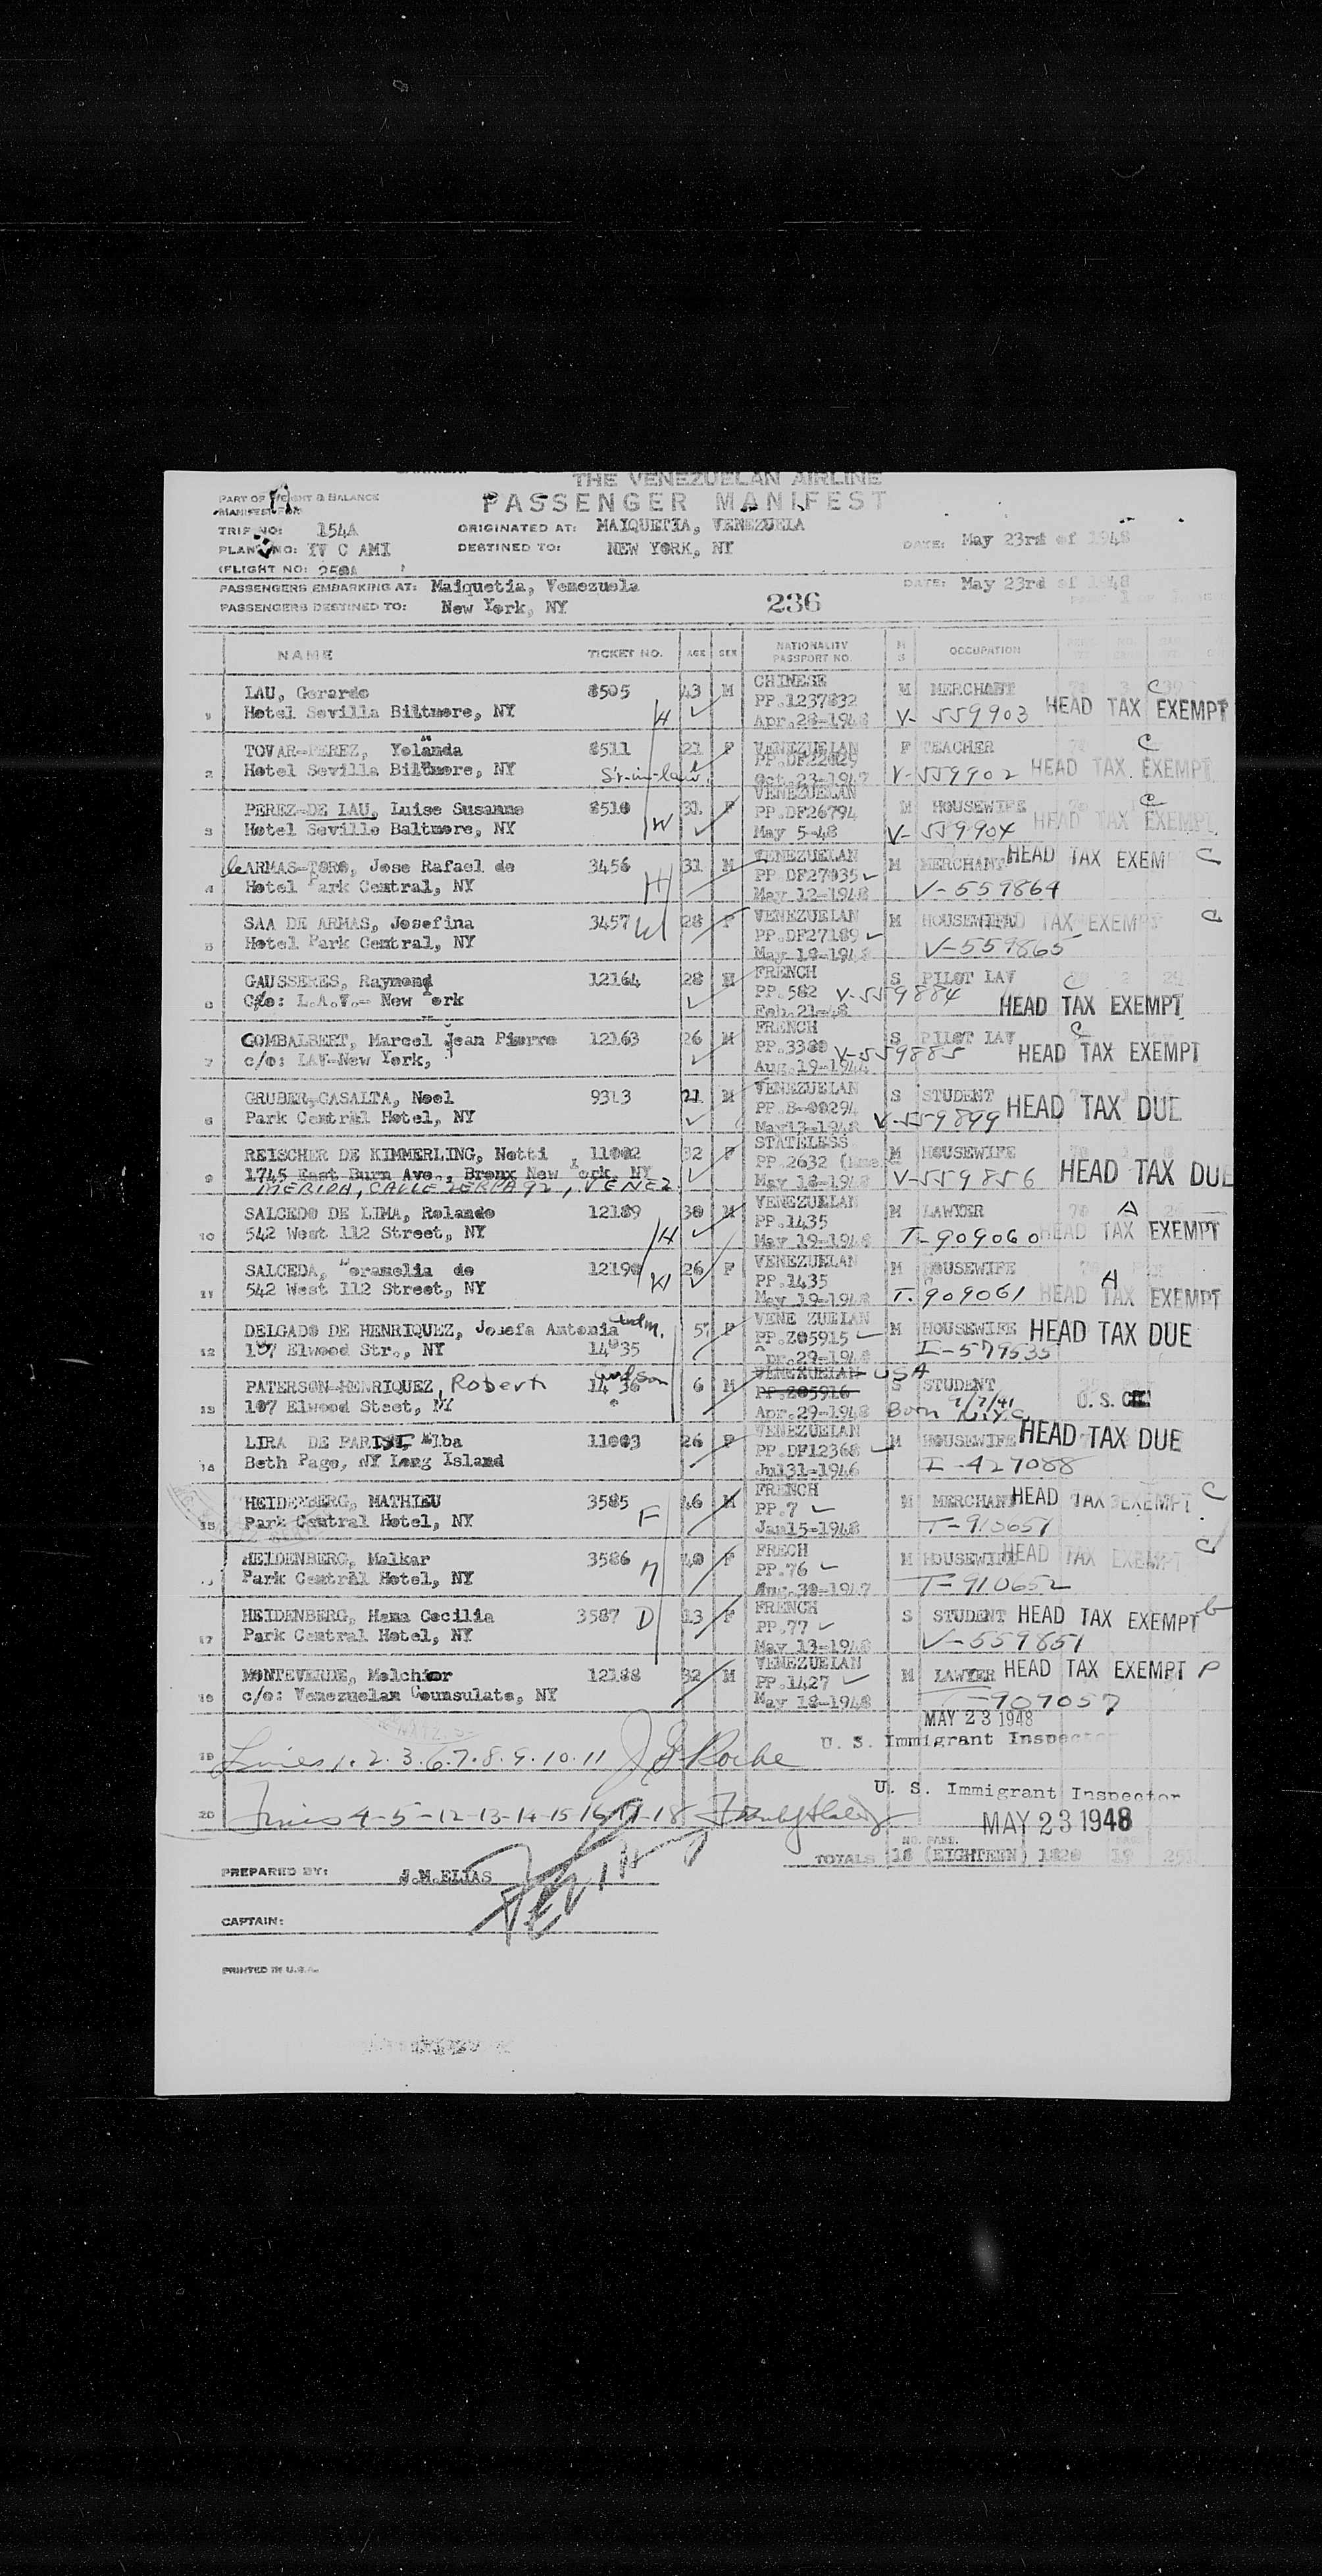 THE VENEZUELAN AIRLINE
PASSENGER MANIFEST
PART OF WEIGHT & BALANCE
MANIFEST FOR
TRIP NO: 154A
ORIGINATED AT: MAIQUETIA, VENEZUELA
PLANE NO: YV C AMI
DESTINED TO: NEW YORK, NY
DATE: May 23rd of 1948
(FLIGHT NO: 258A )
PASSENGERS EMBARKING AT: Maiquetia, Venezuela
DATE: May 23rd of 1948
PASSENGERS DESTINED TO: New York, NY
236
NAME TICKET NO. AGE SEX NATIONALITY PASSPORT NO. M S OCCUPATION
1 LAU, Gerardo 8505 43 M CHINESE M MERCHANT C
Hotel Sevilla Biltmore, NY H PP.1237832 HEAD TAX EXEMPT
Apr.28-1948 V-559903
2 TOVAR-PEREZ, Yolanda 8511 21 F VENEZUELAN F TEACHER C
Hotel Sevilla Biltmore, NY Sr-in-law PP.DF22029 HEAD TAX EXEMPT
Oct.23-1947 V-559902
3 PEREZ-DE LAU, Luise Susanne 8510 31 F VENEZUELAN M HOUSEWIFE C
Hotel Seville Baltmore, NY W PP.DF26794 HEAD TAX EXEMPT
May 5-48 V-559904
4 de ARMAS-TORO, Jose Rafael de 3456 31 M VENEZUELAN M MERCHANT HEAD TAX EXEM C
Hotel Park Central, NY H PP DF27035
May 12-1948 V-559864
5 SAA DE ARMAS, Josefina 3457 W 28 F VENEZUELAN M HOUSEWIFE HEAD TAX EXEMPT C
Hotel Park Central, NY PP.DF27189
May 18-1948 V-559865
6 GAUSSERES, Raymond 12164 28 M FRENCH S PILOT LAV C
C/o: L.A.V.- New York PP.582 V-559884
Feb.21-48 HEAD TAX EXEMPT
7 COMBALBERT, Marcel Jean Pierre 12163 26 M FRENCH S PILOT LAV C
c/o: LAV-New York, PP.3380 V-559885 HEAD TAX EXEMPT
Aug.19-194
8 GRUBER-CASALTA, Noel 9313 21 M VENEZUELAN S STUDENT
Park Central Hotel, NY PP.B-00294 HEAD TAX DUE
May13-1948 V-559899
9 REISCHER DE KIMMERLING, Netti 11002 32 F STATELESS M HOUSEWIFE
1745 East Burn Ave., Bronx New York, NY PP.2632
MERIDA, CALLE ZERPA 92, VENEZ May 18-1948 V-559856 HEAD TAX DUE
10 SALCEDO DE LIMA, Rolando 12189 30 M VENEZUELAN M LAWYER A
542 West 112 Street, NY H PP.1435
May 19-1948 T-909060 HEAD TAX EXEMPT
11 SALCEDA, Noramelia de 12190 26 F VENEZUELAN M HOUSEWIFE A
542 West 112 Street, NY W PP.1435
May 19-1948 T-909061 HEAD TAX EXEMPT
12 DELGADO DE HENRIQUEZ, Josefa Antonia 5 F VENEZUELAN M HOUSEWIFE HEAD TAX DUE
107 Elwood Str., NY 14035 PP.Z05915
Apr.29-1948 I-579535
13 PATERSON-HENRIQUEZ, Robert 14036 6 M VENEZUELAN USA S STUDENT
107 Elwood Steet, NY PP.Z05916 U. S. CIT
Apr.29-1948 Born 9/7/41 N.Y.C.
14 LIRA DE PARISI, Alba 11003 26 F VENEZUELAN M HOUSEWIFE HEAD TAX DUE
Beth Page, NY Long Island PP.DF12368
Jul31-1946 I-427088
15 HEIDENBERG, MATHIEU 3585 46 M FRENCH M MERCHANT HEAD TAX EXEMPT C
Park Central Hotel, NY F PP.7
Jan15-1948 T-910651
HEIDENBERG, Malkar 3586 40 F FRECH M HOUSEWIFE HEAD TAX EXEMPT C
Park Central Hotel, NY M PP.76
Aug.30-1947 T-910652
17 HEIDENBERG, Hena Cecilia 3587 D 13 F FRENCH S STUDENT HEAD TAX EXEMPT
Park Central Hotel, NY PP.77
May 13-1948 V-559851
18 MONTEVERDE, Melchior 12188 32 M VENEZUELAN M LAWYER HEAD TAX EXEMPT P
c/o: Venezuelan Counsulate, NY PP.1427
May 18-1948 T-909057
MAY 23 1948
U. S. Immigrant Inspector
19 Lines 1. 2. 3. 6. 7. 8. 9. 10. 11 J Roche
U. S. Immigrant Inspector
20 Lines 4-5-12-13-14-15 16 17-18
MAY 23 1948
NO. PASS.
TOTALS 18 (EIGHTEEN)
PREPARED BY: J.M.ELIAS
CAPTAIN:
PRINTED IN U.S.A.